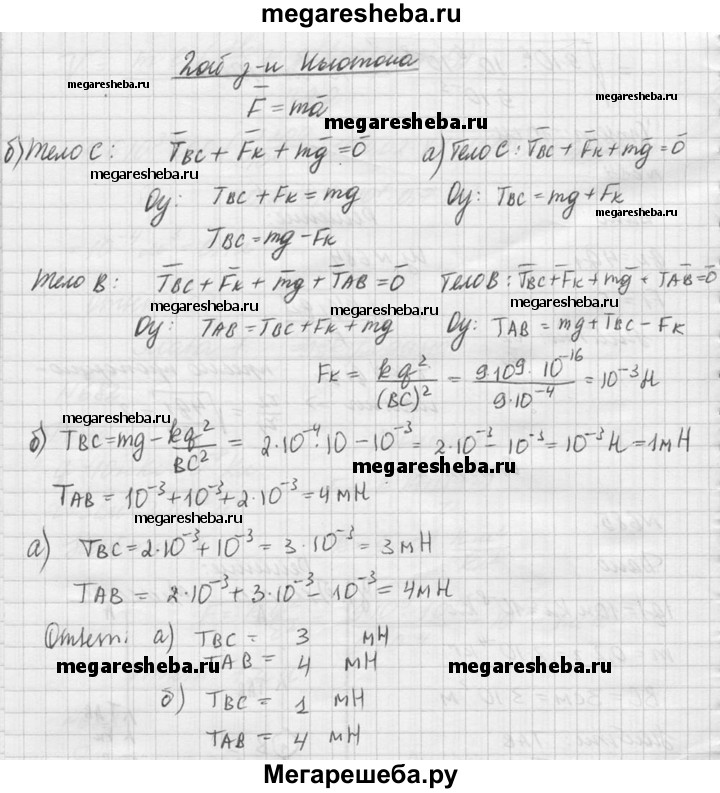 megaresheba.ru
2ой з-н Ньютона
megaresheba.ru
F̅ = ma̅
megaresheba.ru
б) Тело С: T̅BC + F̅K + mg̅ = 0̅ а) Тело С: T̅BC + F̅K + mg̅ = 0̅
megaresheba.ru
Oy: TBC + FK = mg Oy: TBC = mg + FK
megaresheba.ru
TBC = mg - FK
megaresheba.ru
Тело В: T̅BC + F̅K + m̅g + T̅AB = 0̅ Тело В: T̅BC + F̅K + mg̅ + T̅AB = 0̅
megaresheba.ru
megaresheba.ru
Oy: TAB = TBC + FK + mg Oy: TAB = mg + TBC - FK
FK = kq²/(BC)² = 9·10⁹·10⁻¹⁶/9·10⁻⁴ = 10⁻³ Н
megaresheba.ru
б) TBC = mg - kq²/BC² = 2·10⁻⁴·10 - 10⁻³ = 2·10⁻³ - 10⁻³ = 10⁻³ Н = 1мН
megaresheba.ru
TAB = 10⁻³ + 10⁻³ + 2·10⁻³ = 4 мН
megaresheba.ru
а) TBC = 2·10⁻³ + 10⁻³ = 3·10⁻³ = 3 мН
megaresheba.ru
TAB = 2·10⁻³ + 3·10⁻³ - 10⁻³ = 4 мН
megaresheba.ru
Ответ: а) TBC = 3 мН
TAB = 4 мН
megaresheba.ru megaresheba.ru
б) TBC = 1 мН
TAB = 4 мН
Мегарешеба.ру